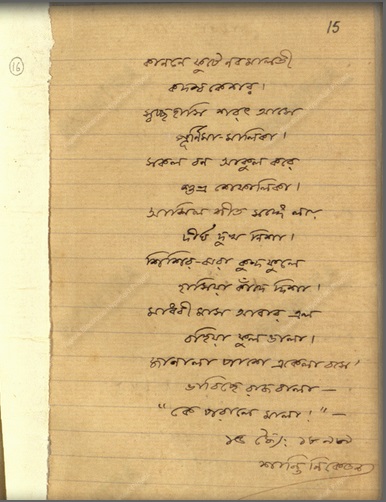 15
16
কাননে ফুটে নবমালতী
কদম্ব কেশর।
স্বচ্ছহাসি শরৎ আসে
পূর্ণিমা-মালিকা।
সকল বন আকুল করে
শুভ্র শেফালিকা।
আসিল শীত সঙ্গে লয়ে
দীর্ঘ দুখ নিশা।
শিশির-ঝরা কুন্দফুলে
হাসিয়া কাঁদে দিশা।
মাধবী মাস আবার এল
বহিয়া ফুল ডালা।
জানালা পাশে একেলা বসে'
ভাবিছে রাজবালা—
"কে পরালে মালা!"—
শান্তিনিকেতন